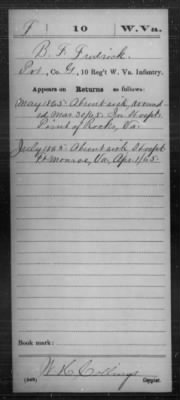 F 10 W.Va.
B. F. Fredrick
Pvt, Co. G, 10 Reg't W. Va. Infantry.
Appears on Returns as follows:
May 1865 Absent sick, wound-
ed Mar. 30/65. In Hospt.
Point of Rocks, Va.
July 1865 Absent sick, Hospt
Ft. Monroe, Va, Apr. 1/65.
Book mark:
W. H. Collings
Copyist.